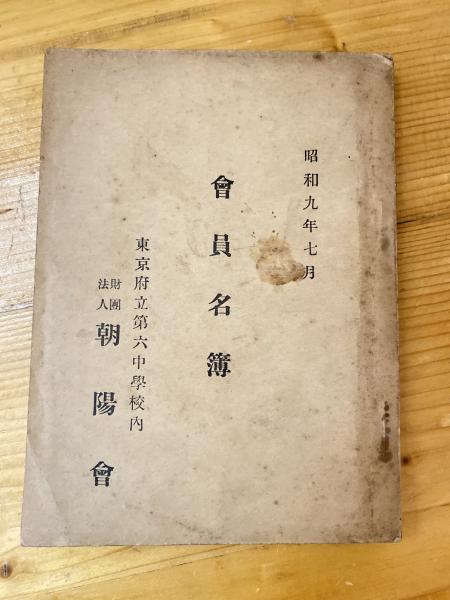 昭和九年七月
會員名簿
東京府立第六中學校內
財團
法人
朝陽會